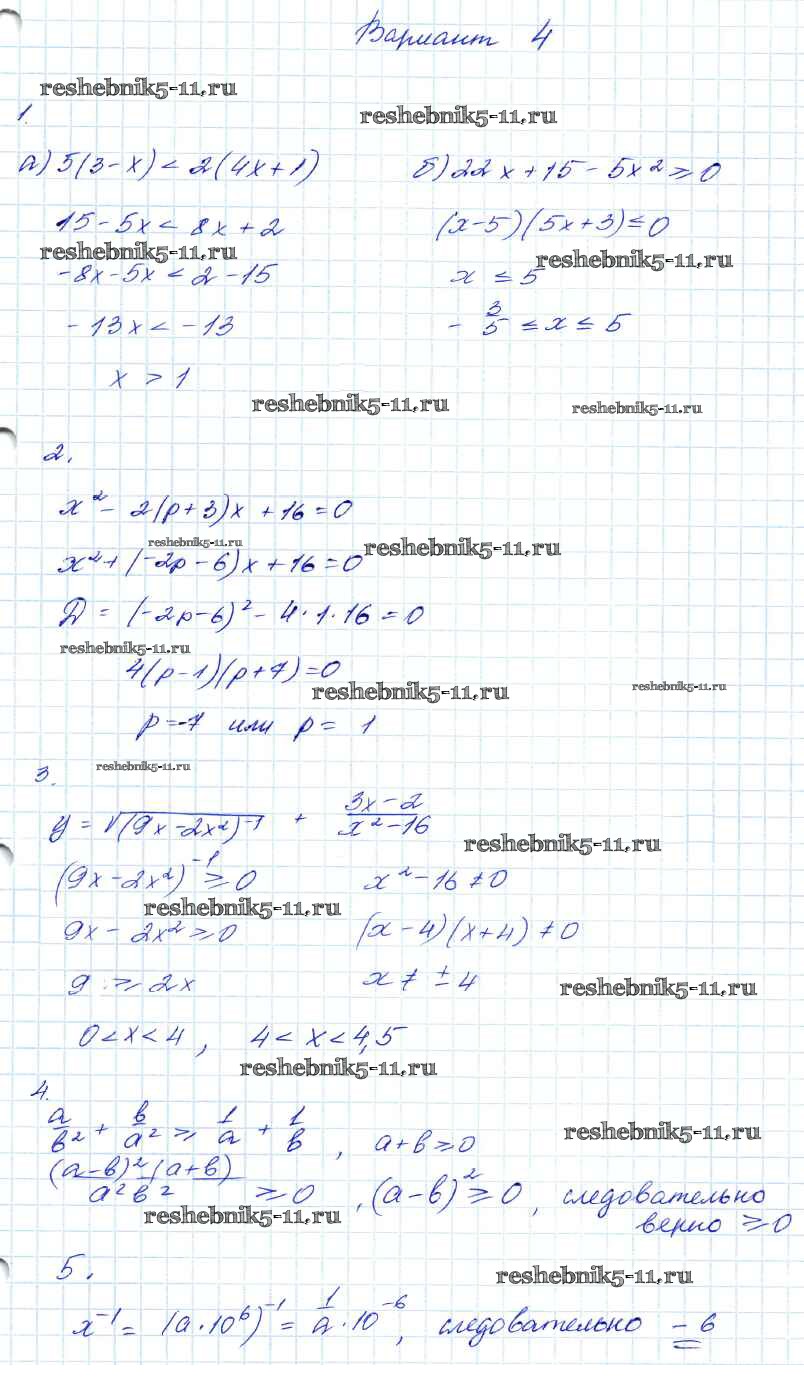 Вариант 4
reshebnik5-11.ru
reshebnik5-11.ru
1.
а) 5(3-x) < 2(4x+1)
б) 22x + 15 - 5x² ≥ 0
15 - 5x < 8x + 2
(x-5)(5x+3) ≤ 0
reshebnik5-11.ru
reshebnik5-11.ru
-8x - 5x < 2 - 15
x ≤ 5
-13x < -13
-3/5 ≤ x ≤ 5
x > 1
reshebnik5-11.ru
reshebnik5-11.ru
2.
x² - 2(p+3)x + 16 = 0
reshebnik5-11.ru
reshebnik5-11.ru
x² + (-2p-6)x + 16 = 0
D = (-2p-6)² - 4·1·16 = 0
reshebnik5-11.ru
4(p-1)(p+7) = 0
reshebnik5-11.ru
reshebnik5-11.ru
p = -7 или p = 1
reshebnik5-11.ru
3.
y = √(9x-2x²)⁻¹ + (3x-2)/(x²-16)
reshebnik5-11.ru
(9x-2x²)⁻¹ ≥ 0
x² - 16 ≠ 0
reshebnik5-11.ru
9x - 2x² ≥ 0
(x-4)(x+4) ≠ 0
9 ≥ 2x
x ≠ ± 4
reshebnik5-11.ru
0 < x < 4, 4 < x < 4,5
reshebnik5-11.ru
4.
a/b² + b/a² ≥ 1/a + 1/b, a+b ≥ 0
reshebnik5-11.ru
(a-b)²(a+b)/a²b² ≥ 0, (a-b)² ≥ 0, следовательно
верно ≥ 0
reshebnik5-11.ru
5.
reshebnik5-11.ru
x⁻¹ = (a·10⁶)⁻¹ = 1/a · 10⁻⁶, следовательно -6